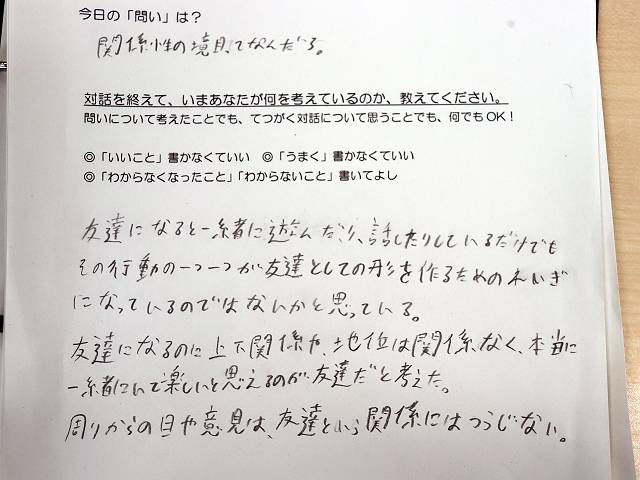 今日の「問い」は？
関係性の境目ってなんだろ。
対話を終えて、いまあなたが何を考えているのか、教えてください。
問いについて考えたことでも、てつがく対話について思うことでも、何でもOK！
◎「いいこと」書かなくていい　◎「うまく」書かなくていい
◎「わからなくなったこと」「わからないこと」書いてよし
友達になると一緒に遊んだり、話したりしているだけでも
その行動の一つ一つが友達としての形を作るためのねいぎ
になっているのではないかと思っている。
友達になるのに上下関係や、地位は関係なく、本当に
一緒にいて楽しいと思えるのが友達だと考えた。
周りからの目や意見は、友達という関係にはつうじない。